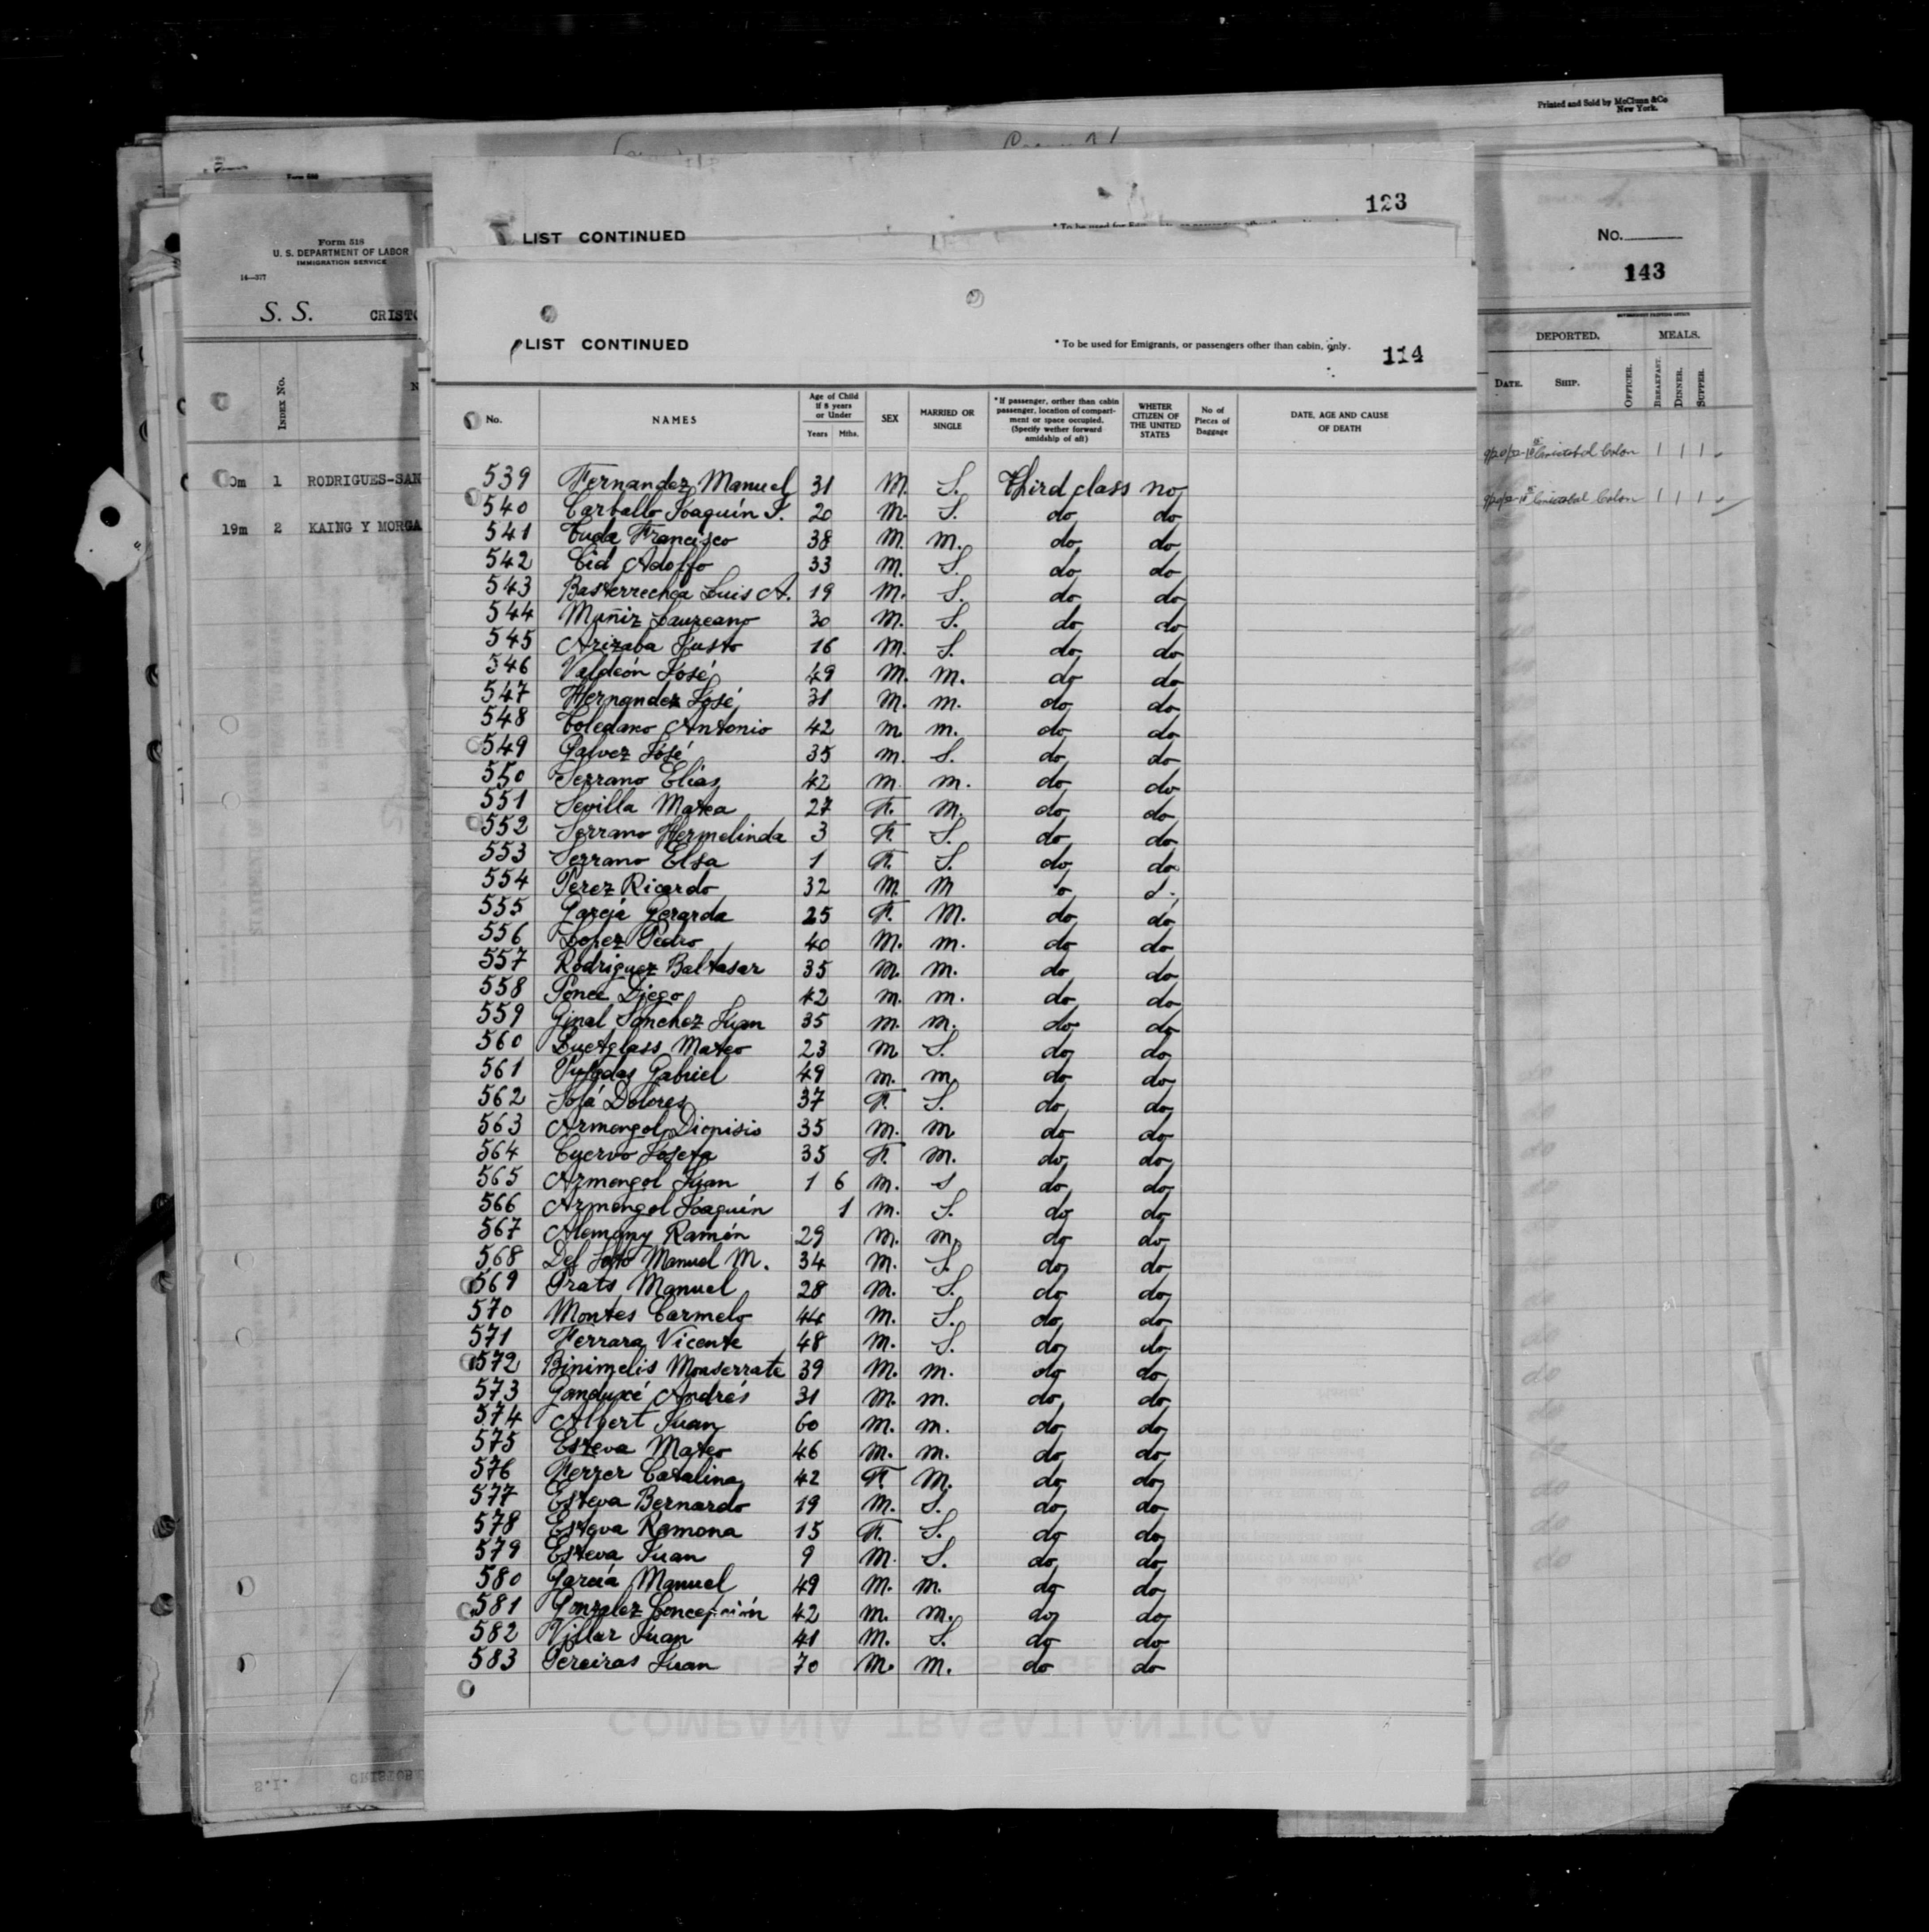 Printed and Sold by McClunn & Co
New York.
Form 518
U. S. DEPARTMENT OF LABOR
IMMIGRATION SERVICE
14—377
S. S. CRISTO
INDEX No.
1 RODRIGUES-SAN
19m 2 KAING Y MORGA
No.
143
DEPORTED. MEALS.
DATE. SHIP. OFFICER. BREAKFAST. DINNER. SUPPER.
Cristobal Colon 1 1 1
Cristobal Colon 1 1 1
123
LIST CONTINUED
LIST CONTINUED * To be used for Emigrants, or passengers other than cabin, only. 114
No. NAMES Age of Child if 8 years or Under Years Mths. SEX MARRIED OR SINGLE * If passenger, orther than cabin passenger, location of compartment or space occupied. (Specify wether forward amidship of aft) WHETER CITIZEN OF THE UNITED STATES No of Pieces of Baggage DATE, AGE AND CAUSE OF DEATH
539 Fernandez Manuel 31 M. S. Third class no
540 Carballo Joaquín J. 20 M. S. do do
541 Tuda Francisco 38 M. M. do do
542 Cid Adolfo 33 M. S. do do
543 Basterrechea Luis A. 19 M. S. do do
544 Muñiz Laureano 30 M. S. do do
545 Arizaba Justo 16 M. S. do do
546 Valdeón José 49 M. M. do do
547 Hernandez José 31 M. M. do do
548 Toledano Antonio 42 M M. do do
549 Galvez José 35 M. S. do do
550 Serrano Elías 42 M. M. do do
551 Sevilla Matea 27 F. M. do do
552 Serrano Hermelinda 3 F. S. do do
553 Serrano Elsa 1 F. S. do do
554 Perez Ricardo 32 M. M o d.
555 García Gerarda 25 F. M. do do
556 Lopez Pedro 40 M. M. do do
557 Rodriguez Baltasar 35 M. M. do do
558 Ponce Diego 42 M. M. do do
559 Ginal Sanchez Juan 35 M. M. do do
560 Buetglass Mateo 23 M S. do do
561 Pujadas Gabriel 49 M. M. do do
562 Solá Dolores 37 F. S. do do
563 Armengol Dionisio 35 M. M do do
564 Cuervo Josefa 35 F. M. do do
565 Armengol Juan 1 6 M. S do do
566 Armengol Joaquín 1 M. S. do do
567 Alemany Ramón 29 M. M. do do
568 Del Soto Manuel M. 34 M. S. do do
569 Prats Manuel 28 M. S. do do
570 Montes Carmelo 44 M. S. do do
571 Ferrara Vicente 48 M. S. do do
572 Binimelis Monserrate 39 M. M. do do
573 Ganduxé Andrés 31 M. M. do do
574 Albert Juan 60 M. M. do do
575 Esteva Mateo 46 M. M. do do
576 Ferrer Catalina 42 F M. do do
577 Esteva Bernardo 19 M. S. do do
578 Esteva Ramona 15 F. S. do do
579 Esteva Juan 9 M. S. do do
580 García Manuel 49 M. M. do do
581 Gonzalez Concepción 42 M. M. do do
582 Villar Juan 41 M. S. do do
583 Pereiras Juan 70 M. M. do do
COMPAÑÍA TRASATLÁNTICA